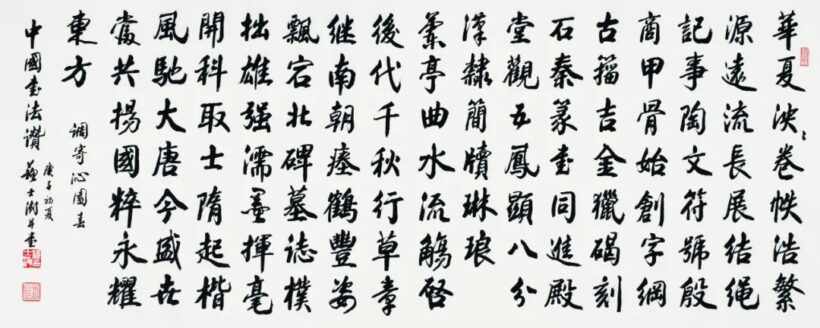 華夏泱〻卷帙浩繁
源遠流長展結绳
記事陶文符號殷
商甲骨始創字綱
古籀吉金獵碣刻
石秦篆書同進殿
堂觀五鳳顯八分
漢隸簡牘琳琅
蘭亭曲水流觴啓
後代千秋行草章
继南朝瘗鶴豐姿
飄宕北碑墓誌樸
拙雄强濡墨揮毫
開科取士隋起楷
風馳大唐今盛世
當共揚國粹永耀
東方
调寄沁園春
中國書法讚
庚子初夏
蘇士澍并書